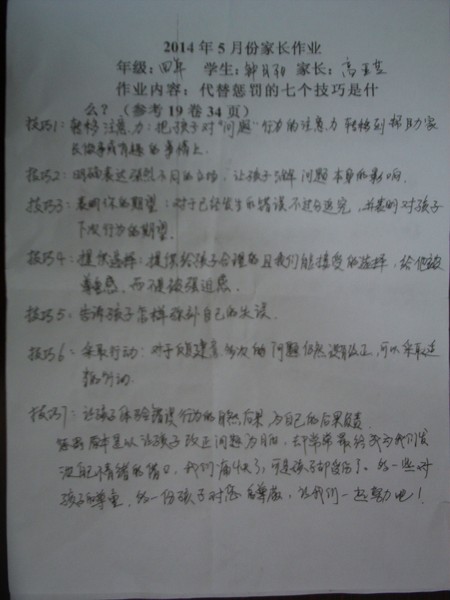 2014年5月份家长作业
年级：四年 学生： 家长：高
作业内容：代替惩罚的七个技巧是什
么？（参考19卷34页）
技巧1：转移注意力：把孩子对“问题”行为的注意力转移到帮助家
长做事或有趣的事情上.
技巧2：明确表达强烈不同的立场，让孩子了解问题本身的影响.
技巧3：表明你的期望：对于已经发生的错误不过分追究，并表明对孩子
下次行为的期望.
技巧4：提供选择：提供给孩子合理的且我们能接受的选择，给他被
尊重感，而不是被强迫感.
技巧5：告诉孩子怎样弥补自己的失误.
技巧6：采取行动：对于反复建议，的问题仍然没有改正，可以采取适
当的行动.
技巧7：让孩子体验错误行为的自然后果，为自己的后果负责.
惩罚原本是以让孩子改正问题为目的，却常常最终成为我们发
泄负情绪的借口，我们痛快了，可是孩子却受伤了。多一些对
孩子的尊重，多一份孩子对您的尊敬，让我们一起努力吧！